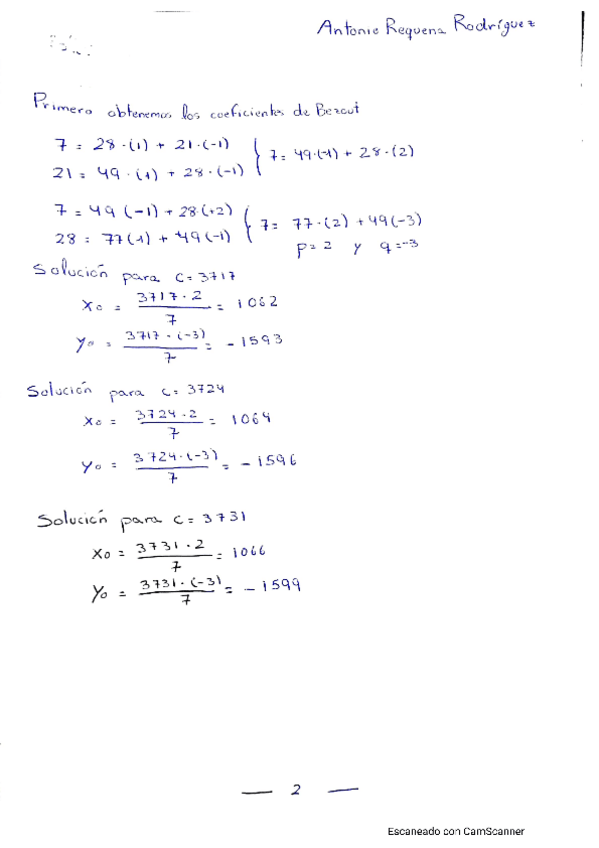 Antonio Requena Rodríguez
Primero obtenemos los coeficientes de Bezout
7 = 28·(1) + 21·(-1)
21 = 49·(1) + 28·(-1)
7 = 49·(-1) + 28·(2)
7 = 49(-1) + 28·(+2)
28 = 77(1) + 49(-1)
7 = 77·(2) + 49(-3)
p = 2 y q = -3
Solución para c = 3717
x₀ = 3717·2 / 7 = 1062
y₀ = 3717·(-3) / 7 = -1593
Solución para c = 3724
x₀ = 3724·2 / 7 = 1064
y₀ = 3724·(-3) / 7 = -1596
Solución para c = 3731
x₀ = 3731·2 / 7 = 1066
y₀ = 3731·(-3) / 7 = -1599
— 2 —
Escaneado con CamScanner